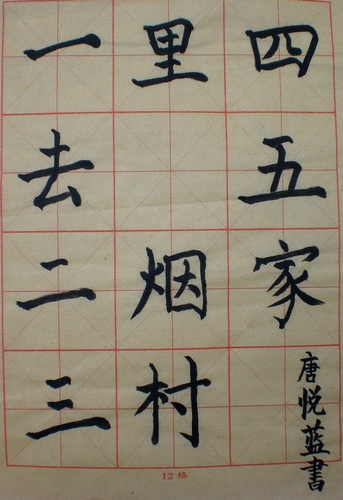 一去二三
里 烟村
四五家
唐悦蓝書
12格